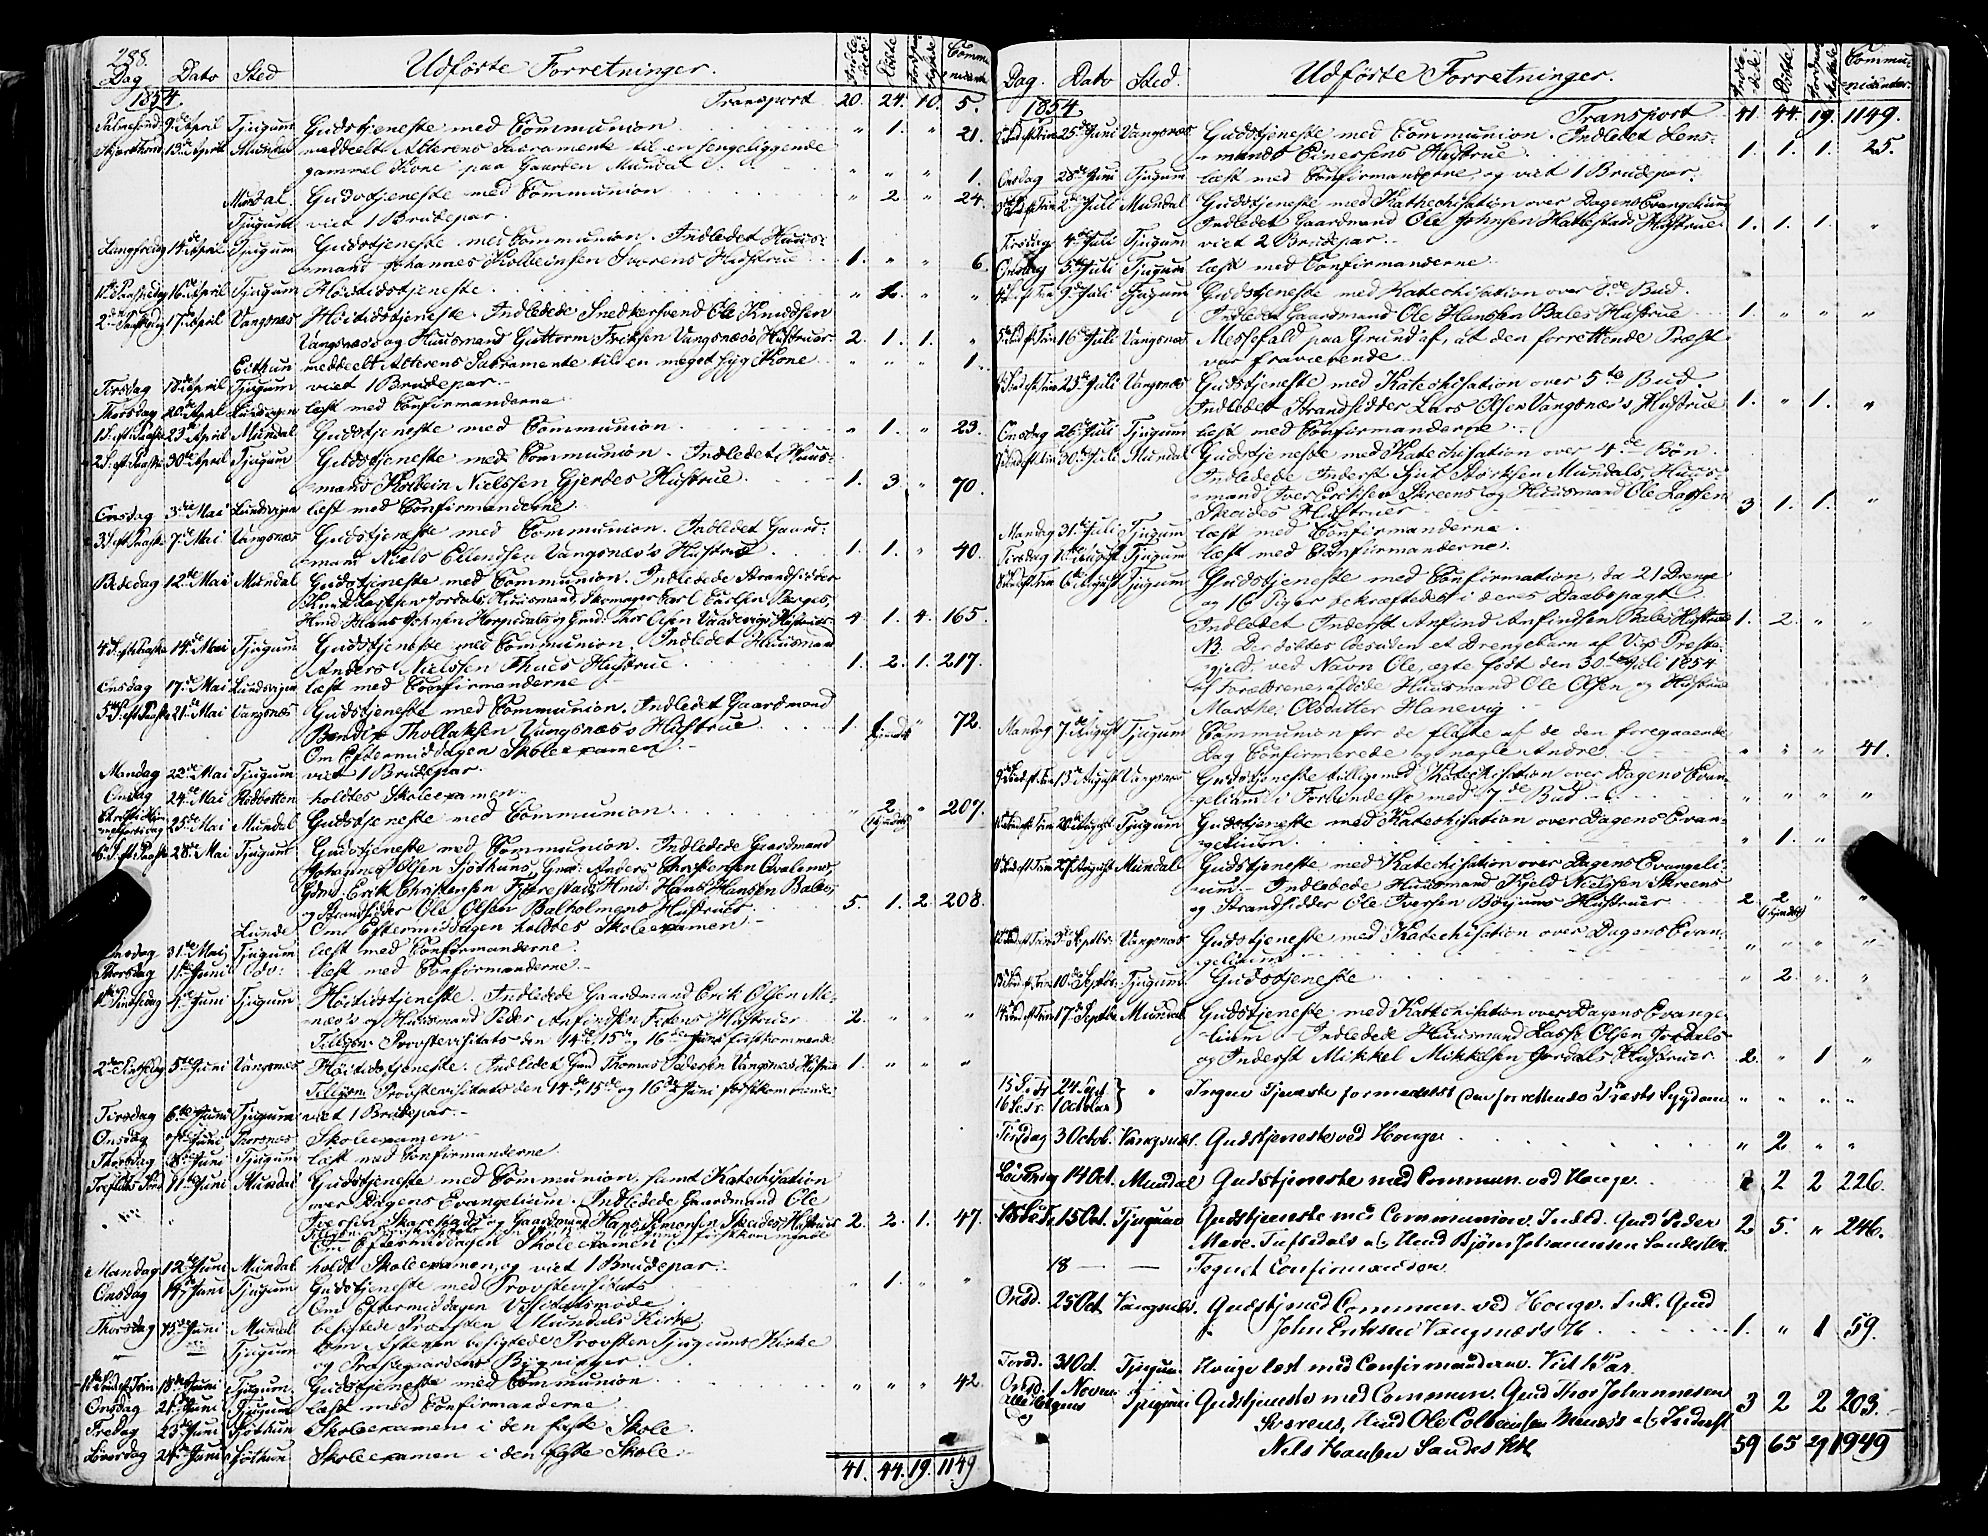 288.
Dag Dato Sted Udførte Forretninger. Indledede: Døbte Fordøm- Commu- nicanter
1854. Transport 20. 24. 10. 5.
Palmesønd 9de April Tjugum Gudstjeneste med Communion " 1. " 21.
Skjærthorsd 13de April Mundal meddeelt Alterens Sacramente til en sengeliggende
gammel Kone paa Gaarden Mundal " " " 1.
Mundal. Gudstjeneste med Communion " 2 " 24.
Tjugum viet 1 Brudepar.
Langfredag 14de April Tjugum Gudstjeneste med Communion. Indledet Huus-
mand Johannes Kolbeinsen Hustrue 1. " " 6.
1ste Paaskedag 16de April Tjugum Høitidstjeneste " " "
2den Paaskedag 17de April Vangsnæs Høitidstjeneste. Indledede Snedkersvend Ole Knudsen
Vangsnæs's og Huusmand Guttorm Eriksen Vangsnæs's Hustruer 2. 1. 1. "
Eithun meddeelt Alterens Sacramente til en meget syg Kone " " " 1.
Tirsdag 18de April Tjugum viet 1 Brudepar.
Thorsdag 20de April læst med Confirmanderne
1 S. eft. Paaske 23de April Mundal Gudstjeneste med Communion " 1. " 23.
2 S. eft. Paaske 30de April Tjugum Gudstjeneste med Communion. Indledet Huus-
mand Kolbein Nielssen Gjerdes Hustrue 1. 3. " 70.
Onsdag 3die Mai læst med Confirmanderne
3 S. eft. Paaske 7de Mai Vangsnæs Gudstjeneste med Communion. Indledet Gaard-
mand Niels Ellendsen Vangsnæs's Hustrue 1. 1. " 40.
Bededag 12te Mai Mundal Gudstjeneste med Communion. Indledede Strandsidder
Knud Lassesen Jordals, Huusmand, Skomager Carl Carlsen Berges,
Hmd. Hans Johnsen og Gmd. Thor Olsen Hustruer 4 1. 4. 165.
4 S. eft. Paaske 14de Mai Tjugum Gudstjeneste med Communion. Indledet Huusmand
Anders Nielssen Thues Hustrue 1. 2. 1. 217.
Onsdag 17de Mai læst med Confirmanderne
5 S. eft. Paaske 21de Mai Vangsnæs Gudstjeneste med Communion. Indledet Gaardmand
Bendix Thollaksen Vangsnæs's Hustrue 1. 1 " 72.
Om Eftermiddagen Skoleexamen.
Mandag 22de Mai Tjugum viet 1 Brudepar.
Onsdag 24de Mai Rødbotten holdtes Skoleexamen.
Christi Himmelfartsdag 25de Mai Mundal Gudstjeneste med Communion " 2. " 207.
6 S. eft. Paaske 28de Mai Tjugum Gudstjeneste med Communion. Indledede Gaardmand
Johannes Olsen Sjøthuns, Gmd: Anders Christensen
Gdmd. Erik Christensen Fjærestads, Hmd: Hans Hansen Bales,
og Strandsidder Ole Olsen Balholmens Hustruer 5. 1. 2. 208.
Lunde Om Eftermiddagen holdtes Skoleexamen
Onsdag 31te Mai Tjugum læst med Confirmanderne
Thorsdag 1ste Juni do: læst med Confirmanderne
1ste Pinsedag 4de Juni Tjugum Høitidstjeneste. Indledede Gaardmand Erik Olsen Me-
næs's og Huusmand Peder Anfindsen Hustruer 2. " " "
Tillyst Provstevisitats den 14de, 15de og 16de Juni førstkommende.
2den Pinsedag 5te Juni Vangsnæs Høitidstjeneste. Indledet Gmd Thomas Pedersen Vangsnæs Hustrue 1. " " "
Tillyst Provstevisitats den 14de, 15de og 16de Juni førstkommende
Tirsdag 6te Juni Tjugum viet 1 Brudepar.
Onsdag 7de Juni Thorsnæs Skoleexamen
Thorsdag 8de Juni Tjugum læst med Confirmanderne
Trefold. Sønd 11te Juni Mundal Gudstjeneste med Communion samt Katechisation
over Dagens Evangelium. Indledede Gaardmand Ole
Iversen Skarestads og Gaardmand Hans Simonsen Skeides Hustruer 2. 2. 1. 47.
Om Eftermiddagen Skoleexamen
Mandag 12te Juni Mundal holdt Skoleexamen, og viet 1 Brudepar.
Onsdag 14de Juni Tjugum Gudstjeneste med Provstevisitats " 1. " "
Om Eftermiddagen Visitatsmøde
Thorsdag 15de Juni Mundal besigtede Provsten Mundals Kirke
Tjugum om Aftenen besigtede Provsten Tjugums Kirke
og Præstegaardens Bygninger.
1ste Sønd. eft. Trin 18de Juni Tjugum Gudstjeneste med Communion " " " 42.
Onsdag 21de Juni Tjugum læst med Confirmanderne
Fredag 23de Juni Sjøthun Skoleexamen i den faste Skole.
Løverdag 24de Juni Sjøthun Skoleexamen i den faste Skole.
41. 44. 19. 1149
Dag. Dato Sted. Udførte Forretninger. Døbte. Commu- nicanter.
1854 Transport 41 44. 19. 1149.
25de Juni Vangsnæs Gudstjeneste med Communion. Indledet Lens-
mand Einersens Hustrue. 1. 1. 1. 25.
Onsdag 28de Juni Tjugum læst med Confirmanderne og viet 1 Brudepar.
2den Juli Mundal Gudstjeneste med Kathechisation over Dagens Evangelium
Indledet Gaardmand Ole Johnsen Hattestads Hustrue 1. 1. 1. "
Tirsdag 4de Juli Tjugum viet 2 Brudepar.
Onsdag 5te Juli Tjugum læst med Confirmanderne
9de Juli Tjugum Gudstjeneste med Katechisation over 8de Bud.
Indledet Gaardmand Ole Hansen Bales Hustrue 1. " " "
16de Juli Vangsnæs Messefald paa Grund af, at den forrettende Præst
var fraværende
23de Juli Vangsnæs Gudstjeneste med Katechisation over 5te Bud.
Indledet Strandsidder Lars Olsen Vangsnæs's Hustrue 1. " 1. "
Onsdag 26de Juli Tjugum læst med Confirmanderne
30de Juli Mundal Gudstjeneste med Katechisation over 4de Bøn
Indledede Inderst Sjur Størksen Mundals, Huus-
mand Iver Eriksen Skreens og Huusmand Ole Lassesen
Skeides Hustruer 3 1. 1. "
Mandag 31te Juli Tjugum læst med Confirmanderne.
Tirsdag 1ste August Tjugum læst med Confirmanderne.
6te August Tjugum Gudstjeneste med Confirmation, da 21 Drenge
og 16 Piger bekræftedes i deres Daabspagt
Indledet Inderst Anfind Anfindsen Bales Hustrue 1. 2. " "
NB. Der døbtes desuden et Drengebarn af Viigs Præste-
gjeld ved Navn Ole, ægte født den 30te Juli 1854
af Forældrene Huusmand Ole Olsen og Hustrue
Marthe Olsdatter Hanevig.
Mandag 7de August Tjugum Communion for de fleste af de den foregaaende
Dag Confirmerede og nogle Andre. " " " 41.
13de August Vangsnæs Gudstjeneste tilligemed Katechisation over Dagens Evan-
gelium i Forbindelse med 7de Bud " " " "
20de August Tjugum Gudstjeneste med Katechisation over Dagens Evan-
gelium. " 1. "
27de August Mundal Gudstjeneste med Katechisation over Dagens Evangeli-
um. Indledede Huusmand Kjeld Nielssen Skreens
og Strandsidder Ole Iversen Børjums Hustruer 2. 2 " "
3die Septbr. Vangsnæs Gudstjeneste med Katechisation over Dagens Evan-
gelium " " " "
10de Septbr Tjugum Gudstjeneste " 2. " "
17de Septbr Mundal Gudstjeneste med Katechisation over Dagens Evange-
lium. Indledede Huusmand Lasse Olsen Jordals
og Inderst Mikkel Mikkelsen Jordals Hustruer 2. " 1 "
15 S. 24. Sept
16 S. e. Tr. 1 October } " Ingen Tjeneste formedelst den forrettende Præsts Sygdom " " " "
Tirsdag 3 Octob. Vangsnæs. Gudstjeneste ved Houge " 2 " "
Løverdag 14 Oct. Mundal Gudstjeneste med Commun. ved Houge. 2 2 226.
15 Oct. Tjugum Gudstjeneste med Communion. Indled. Gmd Peder
Made. Tufsedals og Hmd Bjørn Johannessen Sandes 2. 5. " 246.
18 — — Tegnet Confirmander
Onsd. 25 Oct Vangsnæs. Gudstj med Commun. ved Houge. Indl. Gmd
John Eriksen Vangsnæss H 1. " 1 59.
Tirsd. 31 Oct. Tjugum. Houge læst med Confirmanderne. Viet 1 Par.
Onsd. 1 Novem. Tjugum Gudstjeneste med Commun. Gmd Thor Johannesen
Hmd Ole Colbeinsen Menæs's og Inderst 3 2 2 203.
Nels Hansen Sandes 59 65 29 1949